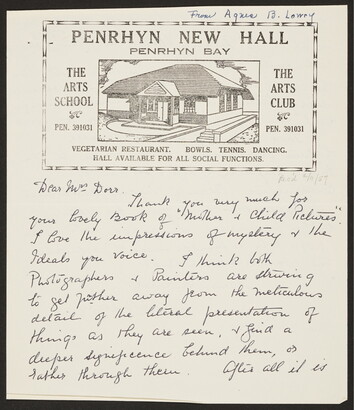 From Agnes B. Lowey
PENRHYN NEW HALL
PENRHYN BAY
THE
ARTS
SCHOOL
PEN. 391031
THE
ARTS
CLUB
PEN. 391031
VEGETARIAN RESTAURANT. BOWLS. TENNIS. DANCING.
HALL AVAILABLE FOR ALL SOCIAL FUNCTIONS.
Dear Mrs Dorr.
Thank you very much for
your lovely Book of "Mother & Child Pictures".
I love the impressions of mystery & the
Ideals you voice. I think both
Photographers & Painters are striving
to get further away from the meticulous
detail of the literal presentation of
things as they are seen, & find a
deeper significence behind them, or
rather through them. After all it is